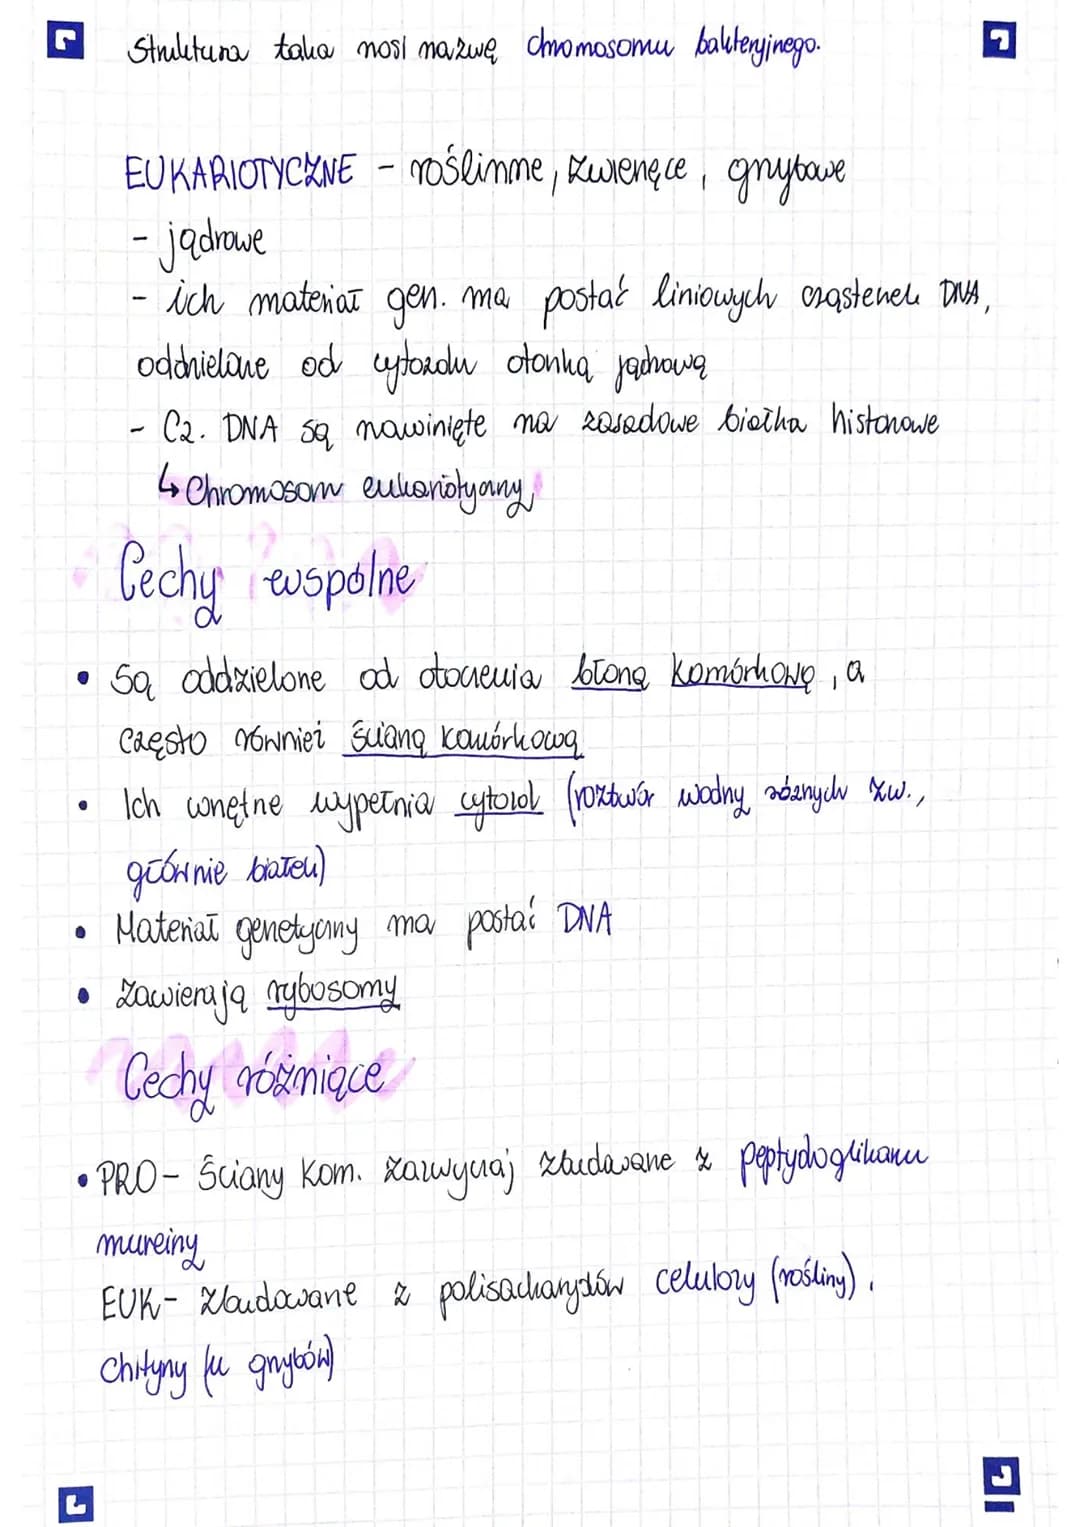 Struktura taka nosi nazwę chromosomu bakteryjnego.
EUKARIOTYCZNE - roślinne, zwierzęce, grzybowe
- jądrowe
- ich materiał gen. ma postać liniowych cząsteczek DNA,
oddzielone od cytozolu otoczką jądrową
- Cz. DNA są nawinięte na zasadowe białka histonowe
↳ Chromosom eukariotyczny
Cechy wspólne
• Są oddzielone od otoczenia błoną komórkową, a
często również ścianą komórkową
• Ich wnętrze wypełnia cytozol (roztwór wodny różnych zw.,
głównie białek)
• Materiał genetyczny ma postać DNA
• Zawierają rybosomy
Cechy różniące
• PRO - Ściany kom. zazwyczaj zbudowane z peptydoglikanu
mureiny
EUK - Zbudowane z polisacharydów celulozy (rośliny),
Chityny (u grzybów)